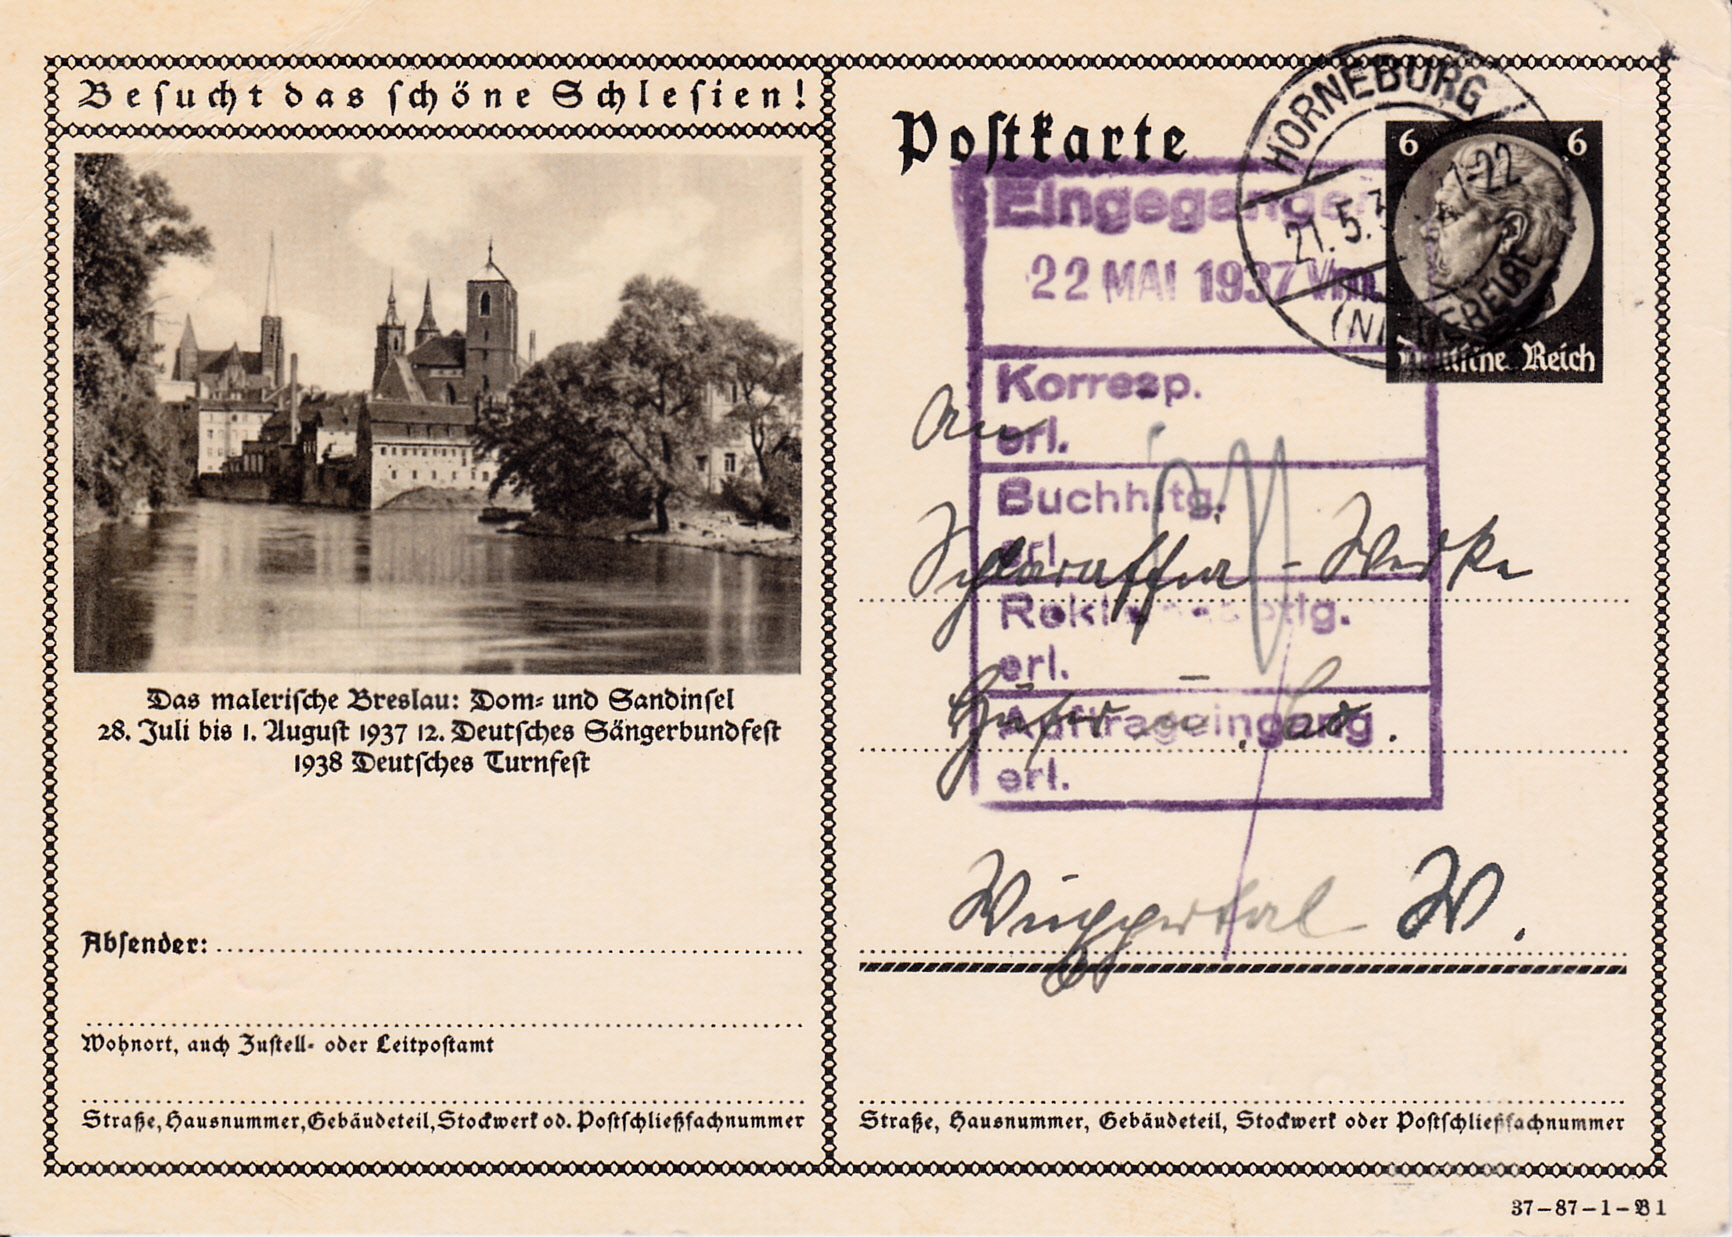 Besucht das schöne Schlesien!
Das malerische Breslau: Dom- und Sandinsel
28. Juli bis 1. August 1937 12. Deutsches Sängerbundfest
1938 Deutsches Turnfest
Absender:
Wohnort, auch Zustell- oder Leitpostamt
Straße, Hausnummer, Gebäudeteil, Stockwerk od. Postschließfachnummer
Postkarte
HORNEBURG
21.5.3 -22
(NIEDERELBE)
6 6
Deutsches Reich
Eingegangen
22 MAI 1937 Vm.
Korresp.
erl.
Buchhltg.
erl.
erl.
Auftragseingang
erl.
An
Schlaraffia-Werke
Hüser u. Co.
Wuppertal W.
Straße, Hausnummer, Gebäudeteil, Stockwerk oder Postschließfachnummer
37-87-1-B1